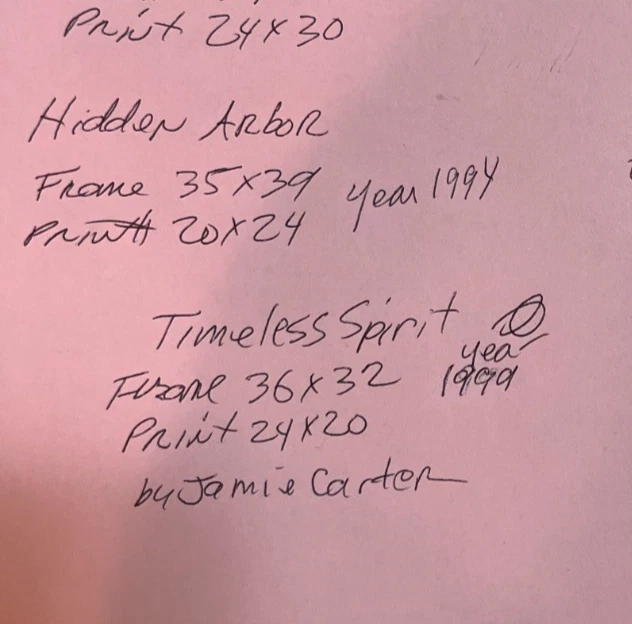 Print 24x30
Hidden Arbor
Frame 35x39 year 1994
Print 20x24
Timeless Spirit
year
Frame 36x32 1999
Print 24x20
by Jamie Carter